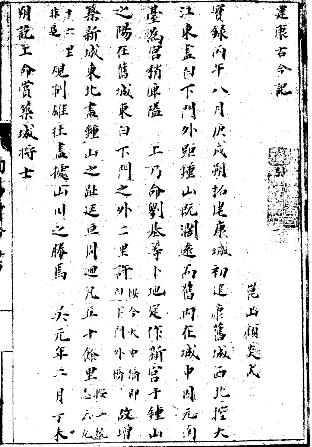 建康古今記
崑山顧炎武
實錄丙午八月庚戌朔拓建康城初建康舊城西北控大
江東盡白下門外距鍾山既闊遠而舊內在城中因元南
臺為宮稍庳隘 上乃命劉基等卜地定作新宮于鍾山
之陽在舊城東白下門之外二里許 故增
築新城東北盡鍾山之趾延亘周迴凡五十餘里
規制雄壯盡據山川之勝焉 吳元年二月丁未
朔詔王命賞築城將士